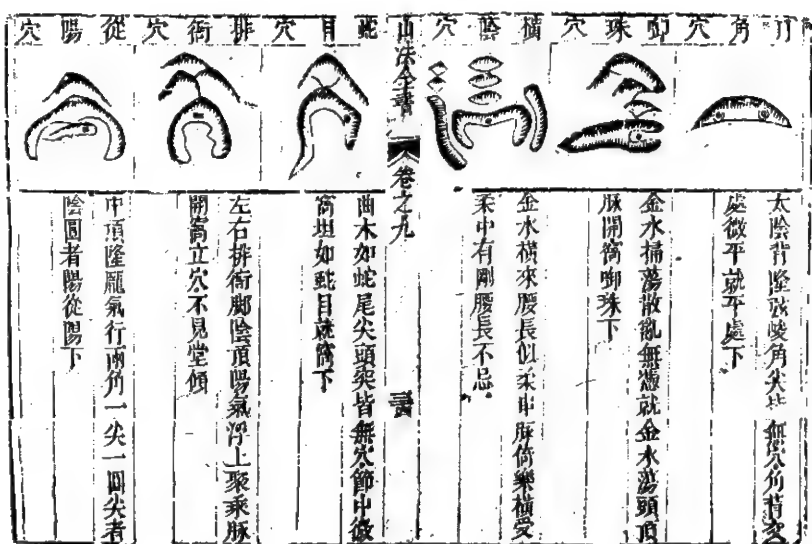 月角穴
太陰背隆弦峻角尖皆無穴角背突
處微平就平處下
啣珠穴
金水掃蕩散亂無憑就金水蕩頭頂
豚開窩啣珠下
橫陰穴
金水橫來腰長似柔中豚倚樂橫受
柔中有剛腰長不忌
山法全書
卷之九
蛇目穴
曲木如蛇尾尖頭奕皆無穴節中微
窩坦如蛇目藏窩下
排衙穴
左右排衙脚陰頂陽氣浮上聚乘豚
開窩立穴不見堂傾
從陽穴
中頂隆龎氣行兩角一尖一圓尖者
陰圓者陽從陽下